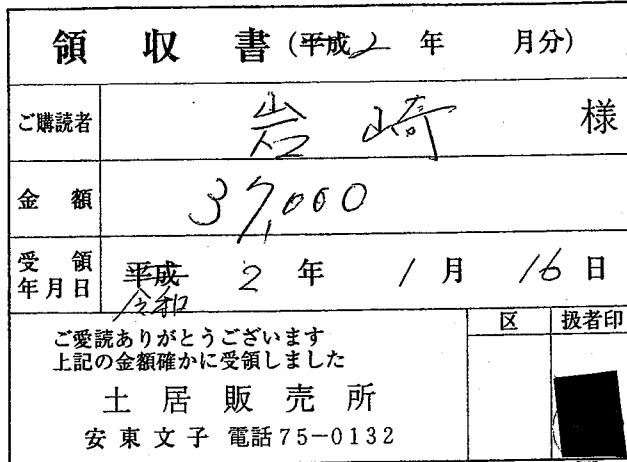 領収書(平成2年 月分)
ご購読者 岩崎 様
金額 37,000
受領年月日 平成 令和 2年 1月 16日
区 扱者印
ご愛読ありがとうございます
上記の金額確かに受領しました
土居販売所
安東文子 電話75-0132